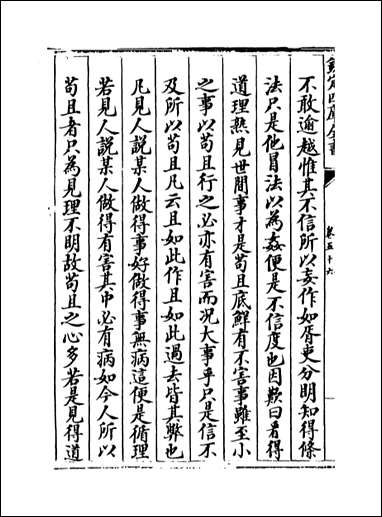 欽定四庫全書
卷五十六
不敢逾越惟其不信所以妄作如胥吏分明知得條
法只是他冒法以為姦便是不信度也因歎曰看得
道理熟見世間事才是苟且底鮮有不害事雖至小
之事以苟且行之必亦有害而況大事乎只是信不
及所以苟且凡云且如此作且如此過去皆其弊也
凡見人說某人做得事好做得事無病這便是循理
若見人說某人做得有害其中必有病如今人所以
苟且者只為見理不明故苟且之心多若是見得道